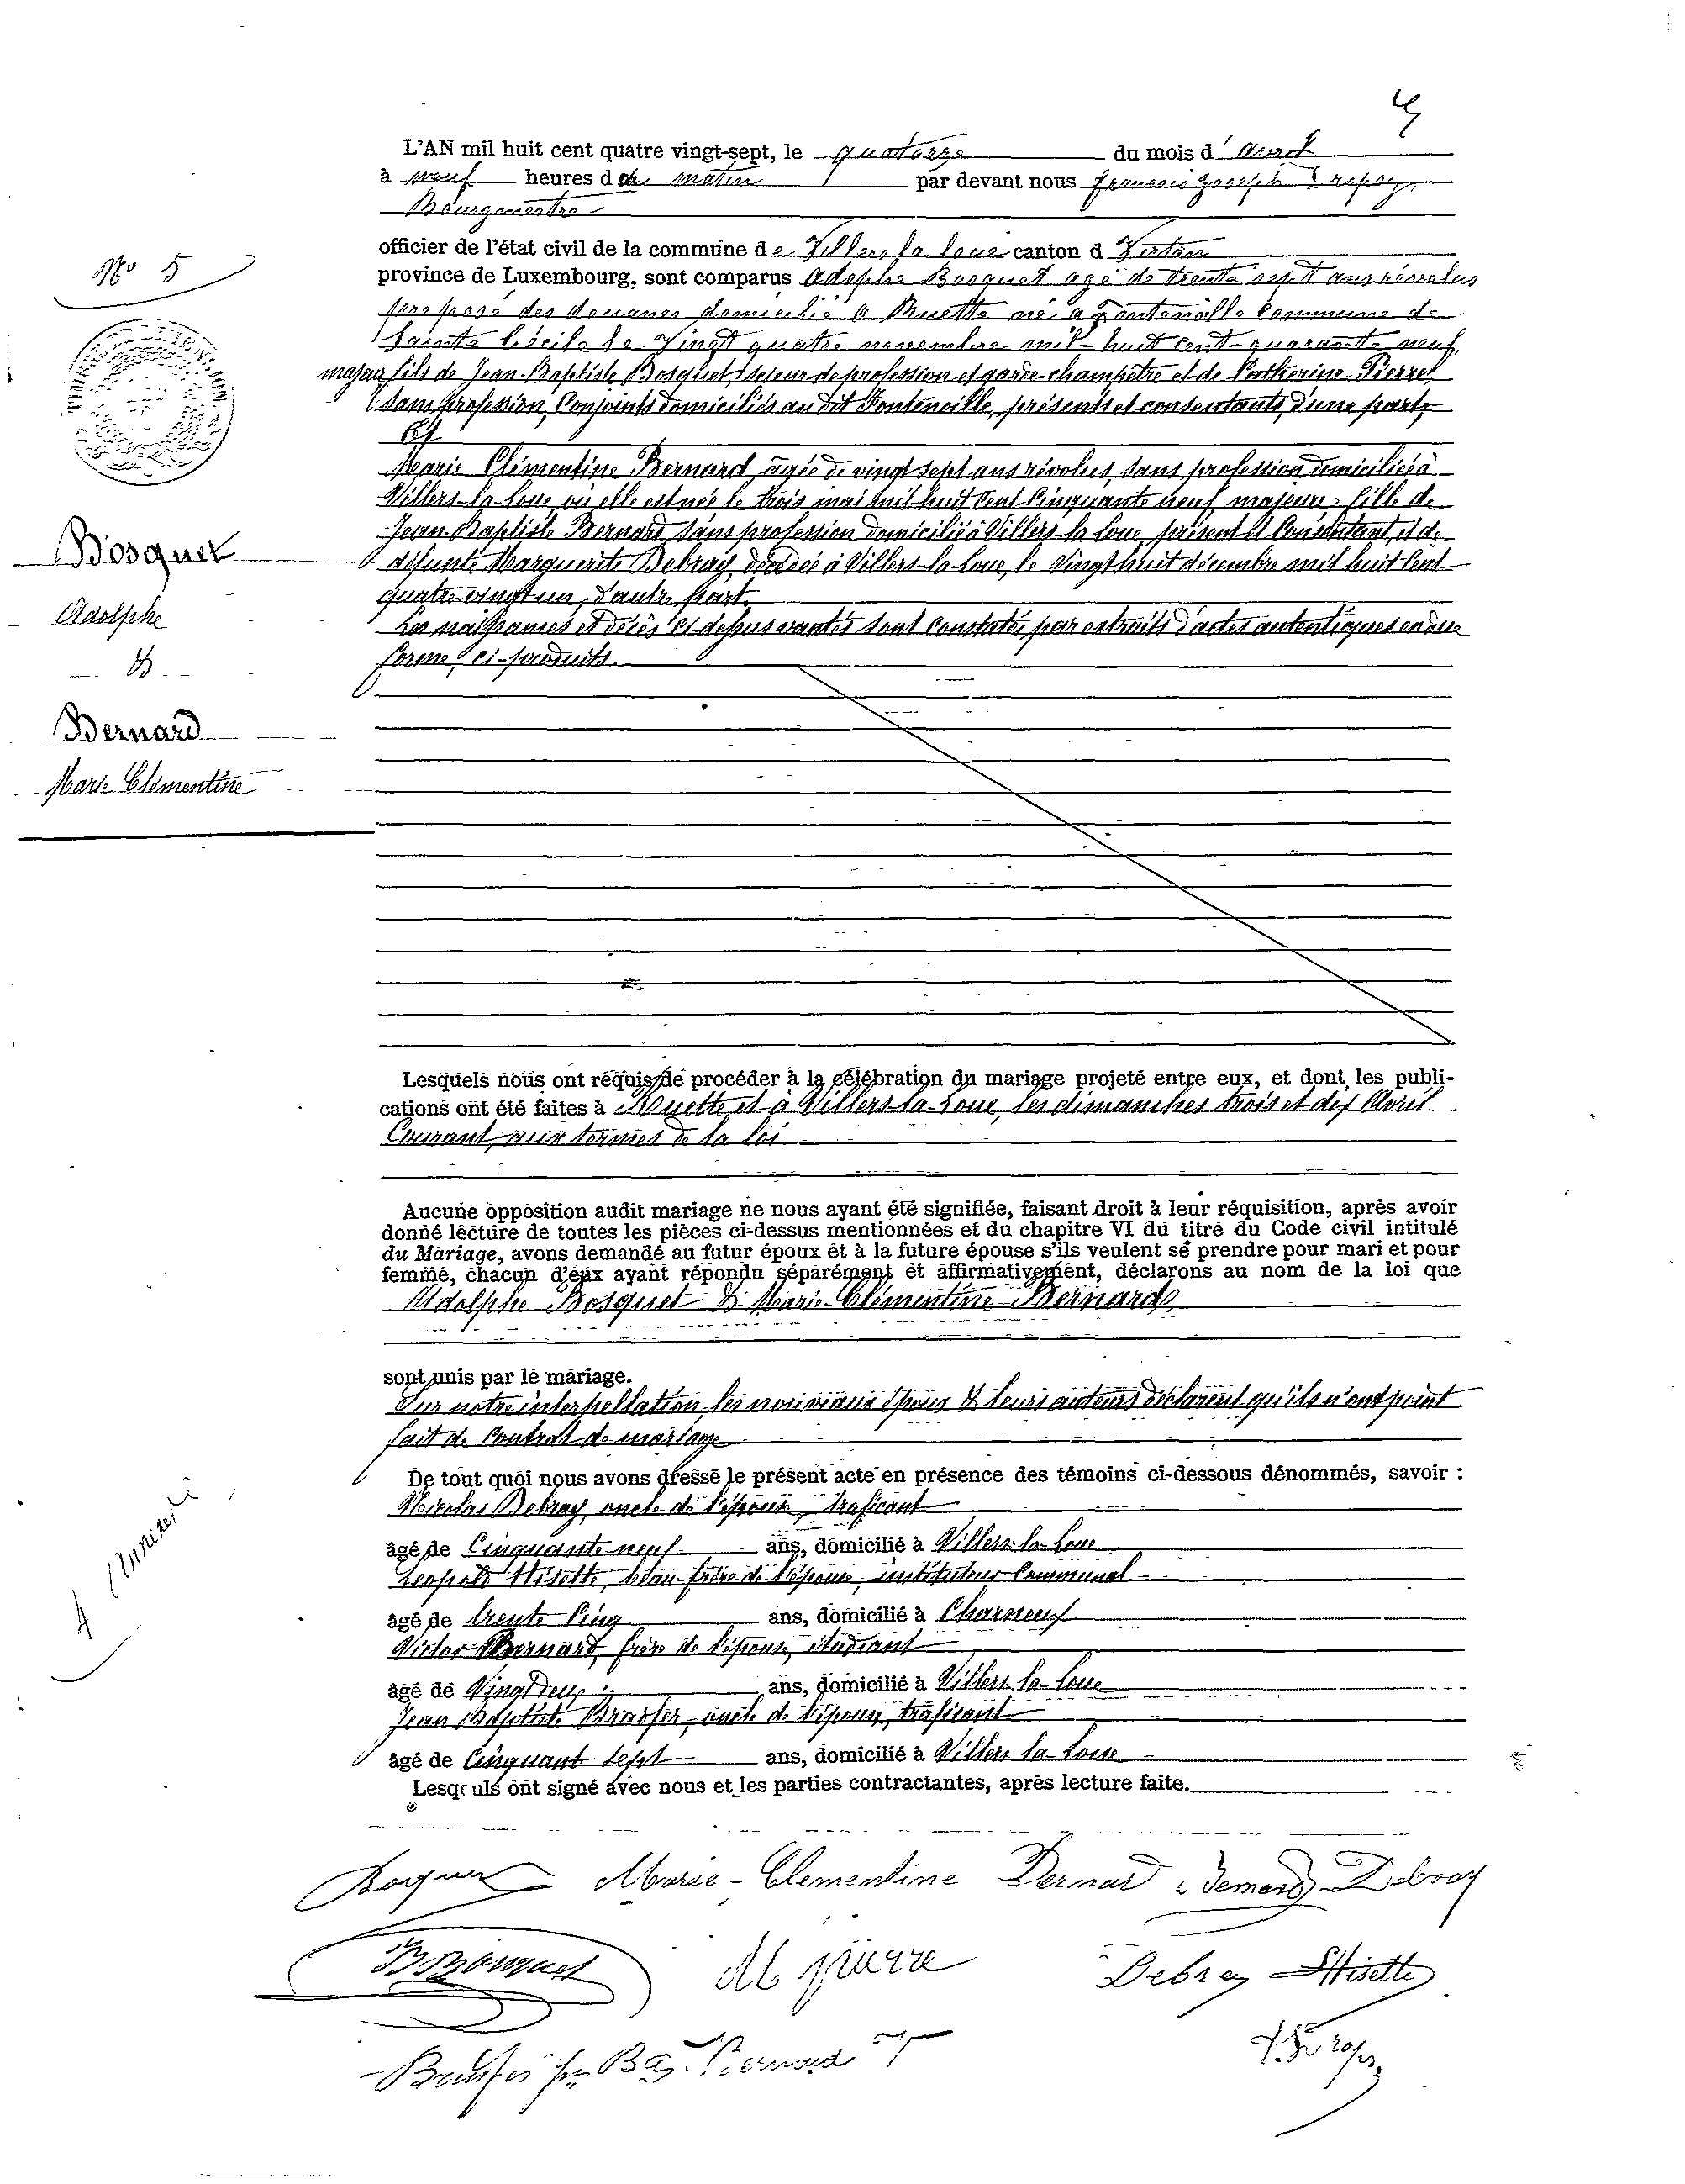 L'AN mil huit cent quatre vingt-sept, le quatorze du mois d'avril
à neuf heures du matin par devant nous françois Joseph
Bourgmestre
officier de l'état civil de la commune de Villers la loue canton d Virton
province de Luxembourg, sont comparus Adolphe Bosquet agé de trente sept ans révolus
preposé des douanes domicilié à Ruette né à Fontenoille Commune de
Sainte Cécile le Vingt quatre novembre mil-huit cent-quarante neuf,
majeur fils de Jean-Baptiste Bosquet, scieur de profession et garde-champêtre et de Catherine Pierret
sans profession, Conjoints domiciliés au dit Fontenoille, présents et consentants, d'une part,
Et
Marie Clémentine Bernard, agée de vingt sept ans révolus, sans profession domiciliée à
Villers-la-Loue, où elle est née le trois mai mil huit Cent Cinquante neuf, majeure, fille de
Jean Baptiste Bernard, sans profession domicilié à Villers-la-Loue, présent et Consentant, et de
défunte Marguerite Debray, décédée à Villers-la-Loue, le Vingt huit décembre mil huit Cent
quatre-vingt un, d'autre part.
Les naissances et décès ci dessus vantés sont constatés par extraits d'actes autentiques en due
forme, ci-produits.
N° 5
Bosquet
Adolphe
&
Bernard
Marie Clémentine
Lesquels nous ont requis de procéder à la célébration du mariage projeté entre eux, et dont les publi-
cations ont été faites à Ruette et à Villers-la-Loue, les dimanches trois et dix Avril
Courant, aux termes de la loi
Aucune opposition audit mariage ne nous ayant été signifiée, faisant droit à leur réquisition, après avoir
donné lecture de toutes les pièces ci-dessus mentionnées et du chapitre VI du titre du Code civil intitulé
du Mariage, avons demandé au futur époux et à la future épouse s'ils veulent se prendre pour mari et pour
femme, chacun d'eux ayant répondu séparément et affirmativement, déclarons au nom de la loi que
Adolphe Bosquet & Marie-Clémentine Bernard
sont unis par le mariage.
Sur notre interpellation, les nouveaux époux & leurs auteurs déclarent qu'ils n'ont point
fait de Contrat de mariage
De tout quoi nous avons dressé le présent acte en présence des témoins ci-dessous dénommés, savoir :
Nicolas Debray, oncle de l'épouse, traficant
âgé de Cinquante neuf ans, domicilié à Villers-la-Loue
Léopold Hisette, beau-frère de l'épouse, instituteur Communal
âgé de trente Cinq ans, domicilié à Charneux
Victor Bernard, frère de l'épouse, étudiant
âgé de Vingt deux ans, domicilié à Villers-la-Loue
Jean Baptiste Brasfer, oncle de l'épouse, traficant
âgé de Cinquant sept ans, domicilié à Villers la-Loue
Lesquels ont signé avec nous et les parties contractantes, après lecture faite.
Bosquet Marie-Clementine Bernard Debray
Bosquet M pierre Debray Hisette
Bernard